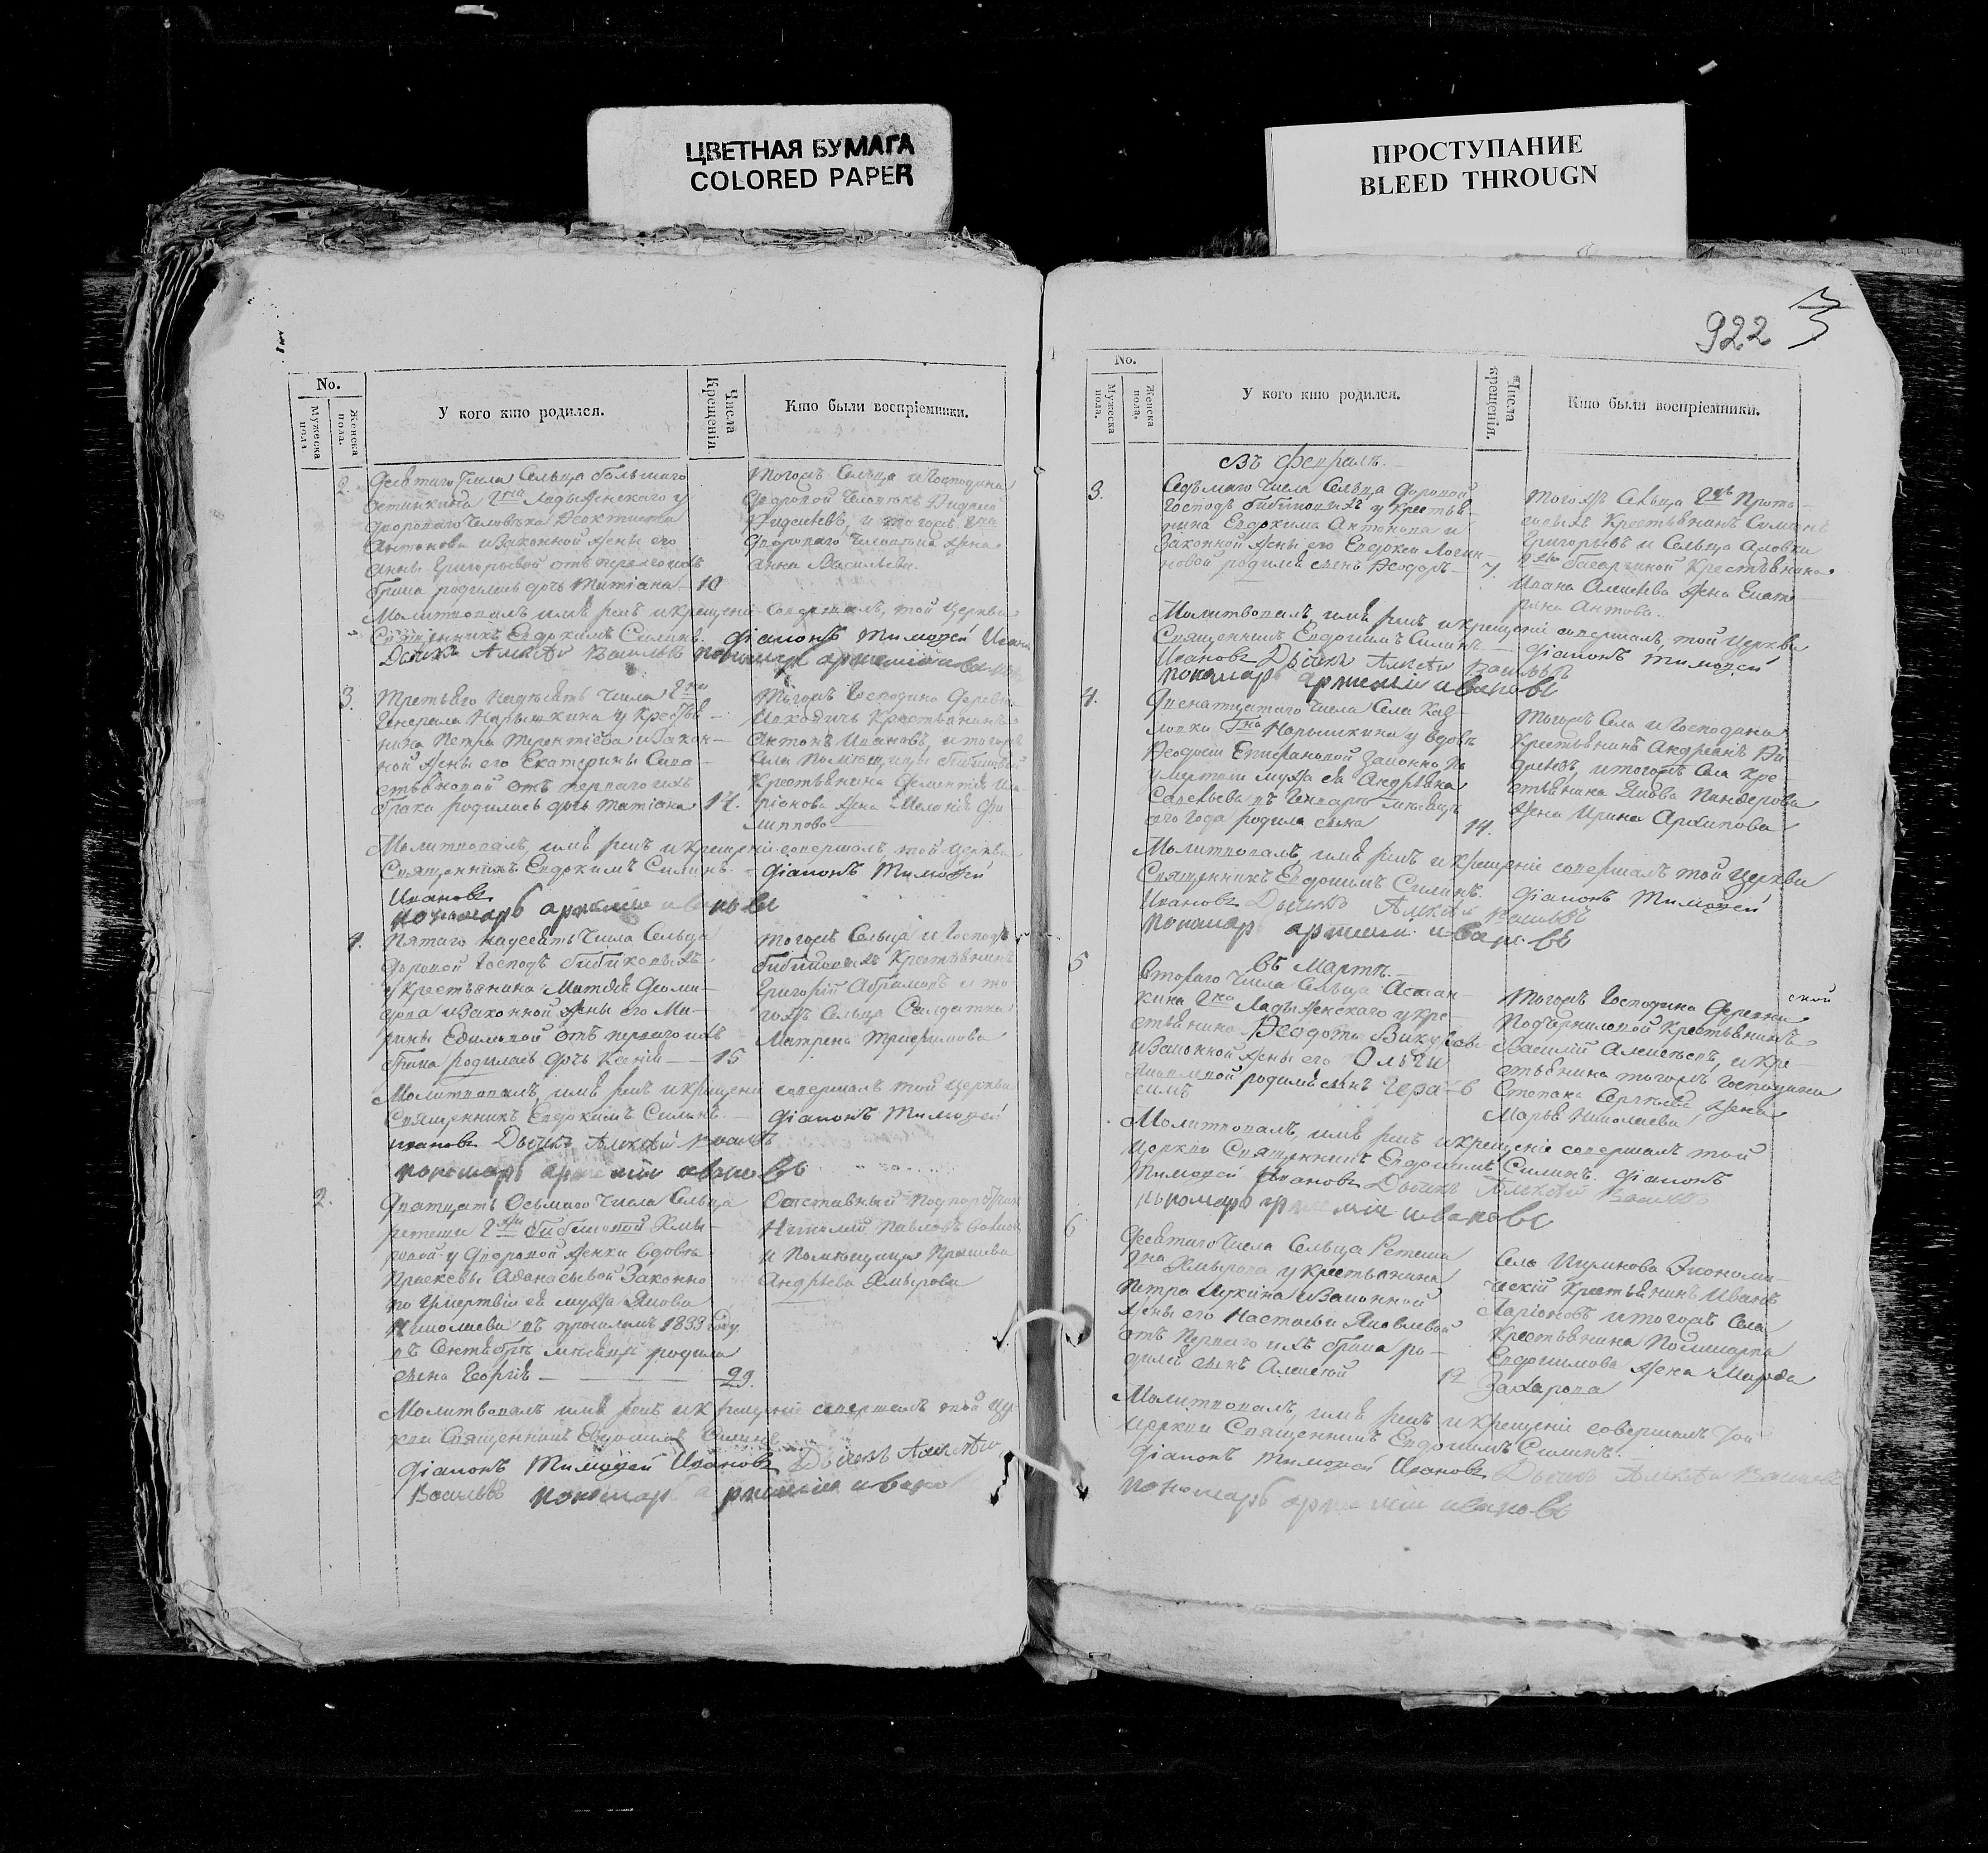 ЦВЕТНАЯ БУМАГА
COLORED PAPER
ПРОСТУПАНИЕ
BLEED THROUGN
922
No.
Мужеска пола
Женска пола.
У кого кто родился.
Числа Крещенія
Кто были воспріемники.
2.
Девятаго числа Сельца большаго
Ладыженскаго у
двороваго человѣка Феоктиста
Антонова и законной жены его
Анны Григорьевой отъ перваго ихъ
брака родилась дочь Татіана 10
тогожъ Сельца и Господина
дворовой человѣкъ
и тогожъ
двороваго человѣка жена
Анна Васильева.
Молитвовалъ, имя рекъ и крещеніе совершалъ, той Церкви
Священникъ Евдокимъ Силинъ. Діаконъ Тимофей Иванов
Дьячкъ Алексѣй Васильвъ пономарь артемій иванов
3.
Третьяго надесять числа
Генерала Нарышкина у Крестья-
нина Петра Терентіева и закон-
ной жены его Екатерины Сава-
стьяновой отъ перваго ихъ
брака родилась дочь Татіана 14.
тогожъ Господина Деревни
Крестьянинъ
Антонъ Ивановъ, и тогожъ
Села помѣщицы Бибиковой
Крестьянина Дементія Ила-
ріонова жена Меланія Фи-
липпова
Молитвовалъ, имя рекъ и крещеніе совершалъ, той Церкви
Священникъ Евдокимъ Силинъ. Діаконъ Тимофей
Ивановъ
пономарь артемій ивановъ
4.
Пятаго надесять числа Сельца
Дворовой Господъ Бибиковыхъ
у Крестьянина Матвѣя Деми-
дова и законной жены его Ма-
рины Едимовой отъ перваго ихъ
брака родилась дочь Ксенія 15
тогожъ Сельца и Господъ
Бибиковыхъ Крестьянинъ
Григорій Абрамовъ и то-
гожъ Сельца Солдатка
Матрена Трифимова
Молитвовалъ, имя рекъ и крещеніе совершалъ той Церкви
Священникъ Евдокимъ Силинъ. Діаконъ Тимофей
Ивановъ Дьячкъ Алексѣй Васильвъ
пономарь артемій ивановъ
2.
Дватцать Осьмаго числа Сельца
ретеши Бибиковой Хмы-
ровой у Дворовой женки вдовы
Праскевы Афанасьевой законно
по умертвіи ея мужа Якова
Николаева въ прошломъ 1833 году
въ Октябрѣ мѣсяцѣ родила
сына Георгія 29.
Отставный подпоручикъ
Николай Павловъ
и помѣщица Прасковья
Андреева Хмырова
Молитвовалъ имя рекъ и крещеніе совершалъ той Це-
ркви Священникъ Евдокимъ Силинъ
Діаконъ Тимофей Ивановъ Дьячкъ Алексѣй
Васильвъ пономарь артемій ивано
No.
Мужеска пола.
Женска пола.
У кого кто родился.
Числа крещенія.
Кто были воспріемники.
Въ Февралѣ.
3.
Седьмаго числа Сельца Дворовой
Господъ Бибиковыхъ у крестья-
нина Евдокима Антонова и
законной жены его Евдокеи Логин-
новой родился сынъ Феодоръ 7.
тогожъ Сельца
Крестьянинъ Симонъ
Григорьевъ и Сельца
Крестьянина
Ивана Алексѣева жена Екате-
рина Антова.
Молитвовалъ, имя рекъ и крещеніе совершалъ, той Церкви
Священникъ Евдокимъ Силинъ. Діаконъ Тимофей
Ивановъ Дьячкъ Алексѣй Васильвъ
пономарь артемій ивановъ
4.
Двенатцатаго числа Села Каз-
ловки Нарышкина у вдовы
Феодосіи Епифановой законно по
умертвіи мужа ея Андреяна
Савельева въ Генварѣ мѣсяцѣ
сего года родила сына 14.
тогожъ Села и Господина
Крестьянинъ Андреянъ
и тогожъ Села Кре-
стьянина Якова
жена Ирина Архипова
Молитвовалъ, имя рекъ и крещеніе совершалъ той Церкви
Священникъ Евдокимъ Силинъ. Діаконъ Тимофей
Ивановъ Дьячкъ Алексѣй Васильвъ
пономарь артемій ивановъ
5
Въ Мартѣ.
Втораго числа Сельца Астан-
кина Ладыженскаго у кре-
стьянина Феодота Викулова
и законной жены его Ольги
Яковлевой родился сынъ Гера- 6
симъ
тогожъ Господина Деревни
Подчерниловой Крестьянинъ
Василій Алексѣевъ, и кре-
стьянина тогожъ Господина
Степана Сергѣева жена
Марья Николаева
Молитвовалъ, имя рекъ и крещеніе совершалъ той
Церкви Священникъ Евдокимъ Силинъ. Діаконъ
Тимофей Ивановъ Дьячкъ Алексѣй Васильвъ
пономарь артемій ивановъ
6
Девятаго числа Сельца Ретеши
Хмырова у крестьянина
Петра Лукина и законной
жены его Настасьи Яковлевой
отъ перваго ихъ брака ро-
дился сынъ Алексей 12
Села Экономи-
ческій Крестьянинъ Иванъ
Ларіоновъ и тогожъ Села
Крестьянина Поликарпа
Евдокимова жена Марфа
Захарова
Молитвовалъ, имя рекъ и крещеніе совершалъ той
Церкви Священникъ Евдокимъ Силинъ.
Діаконъ Тимофей Ивановъ Дьячкъ Алексѣй Васильвъ
пономарь артемій ивановъ